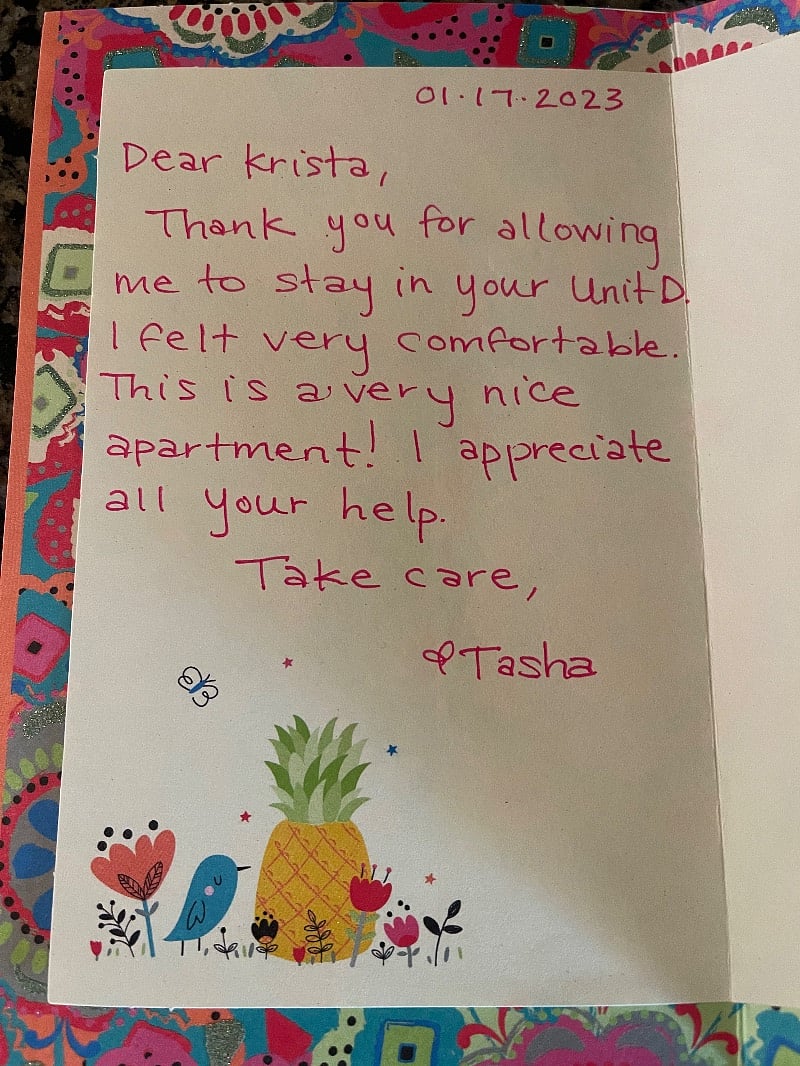 01.17.2023
Dear Krista,
Thank you for allowing
me to stay in your Unit D.
I felt very comfortable.
This is a very nice
apartment! I appreciate
all your help.
Take care,
Tasha